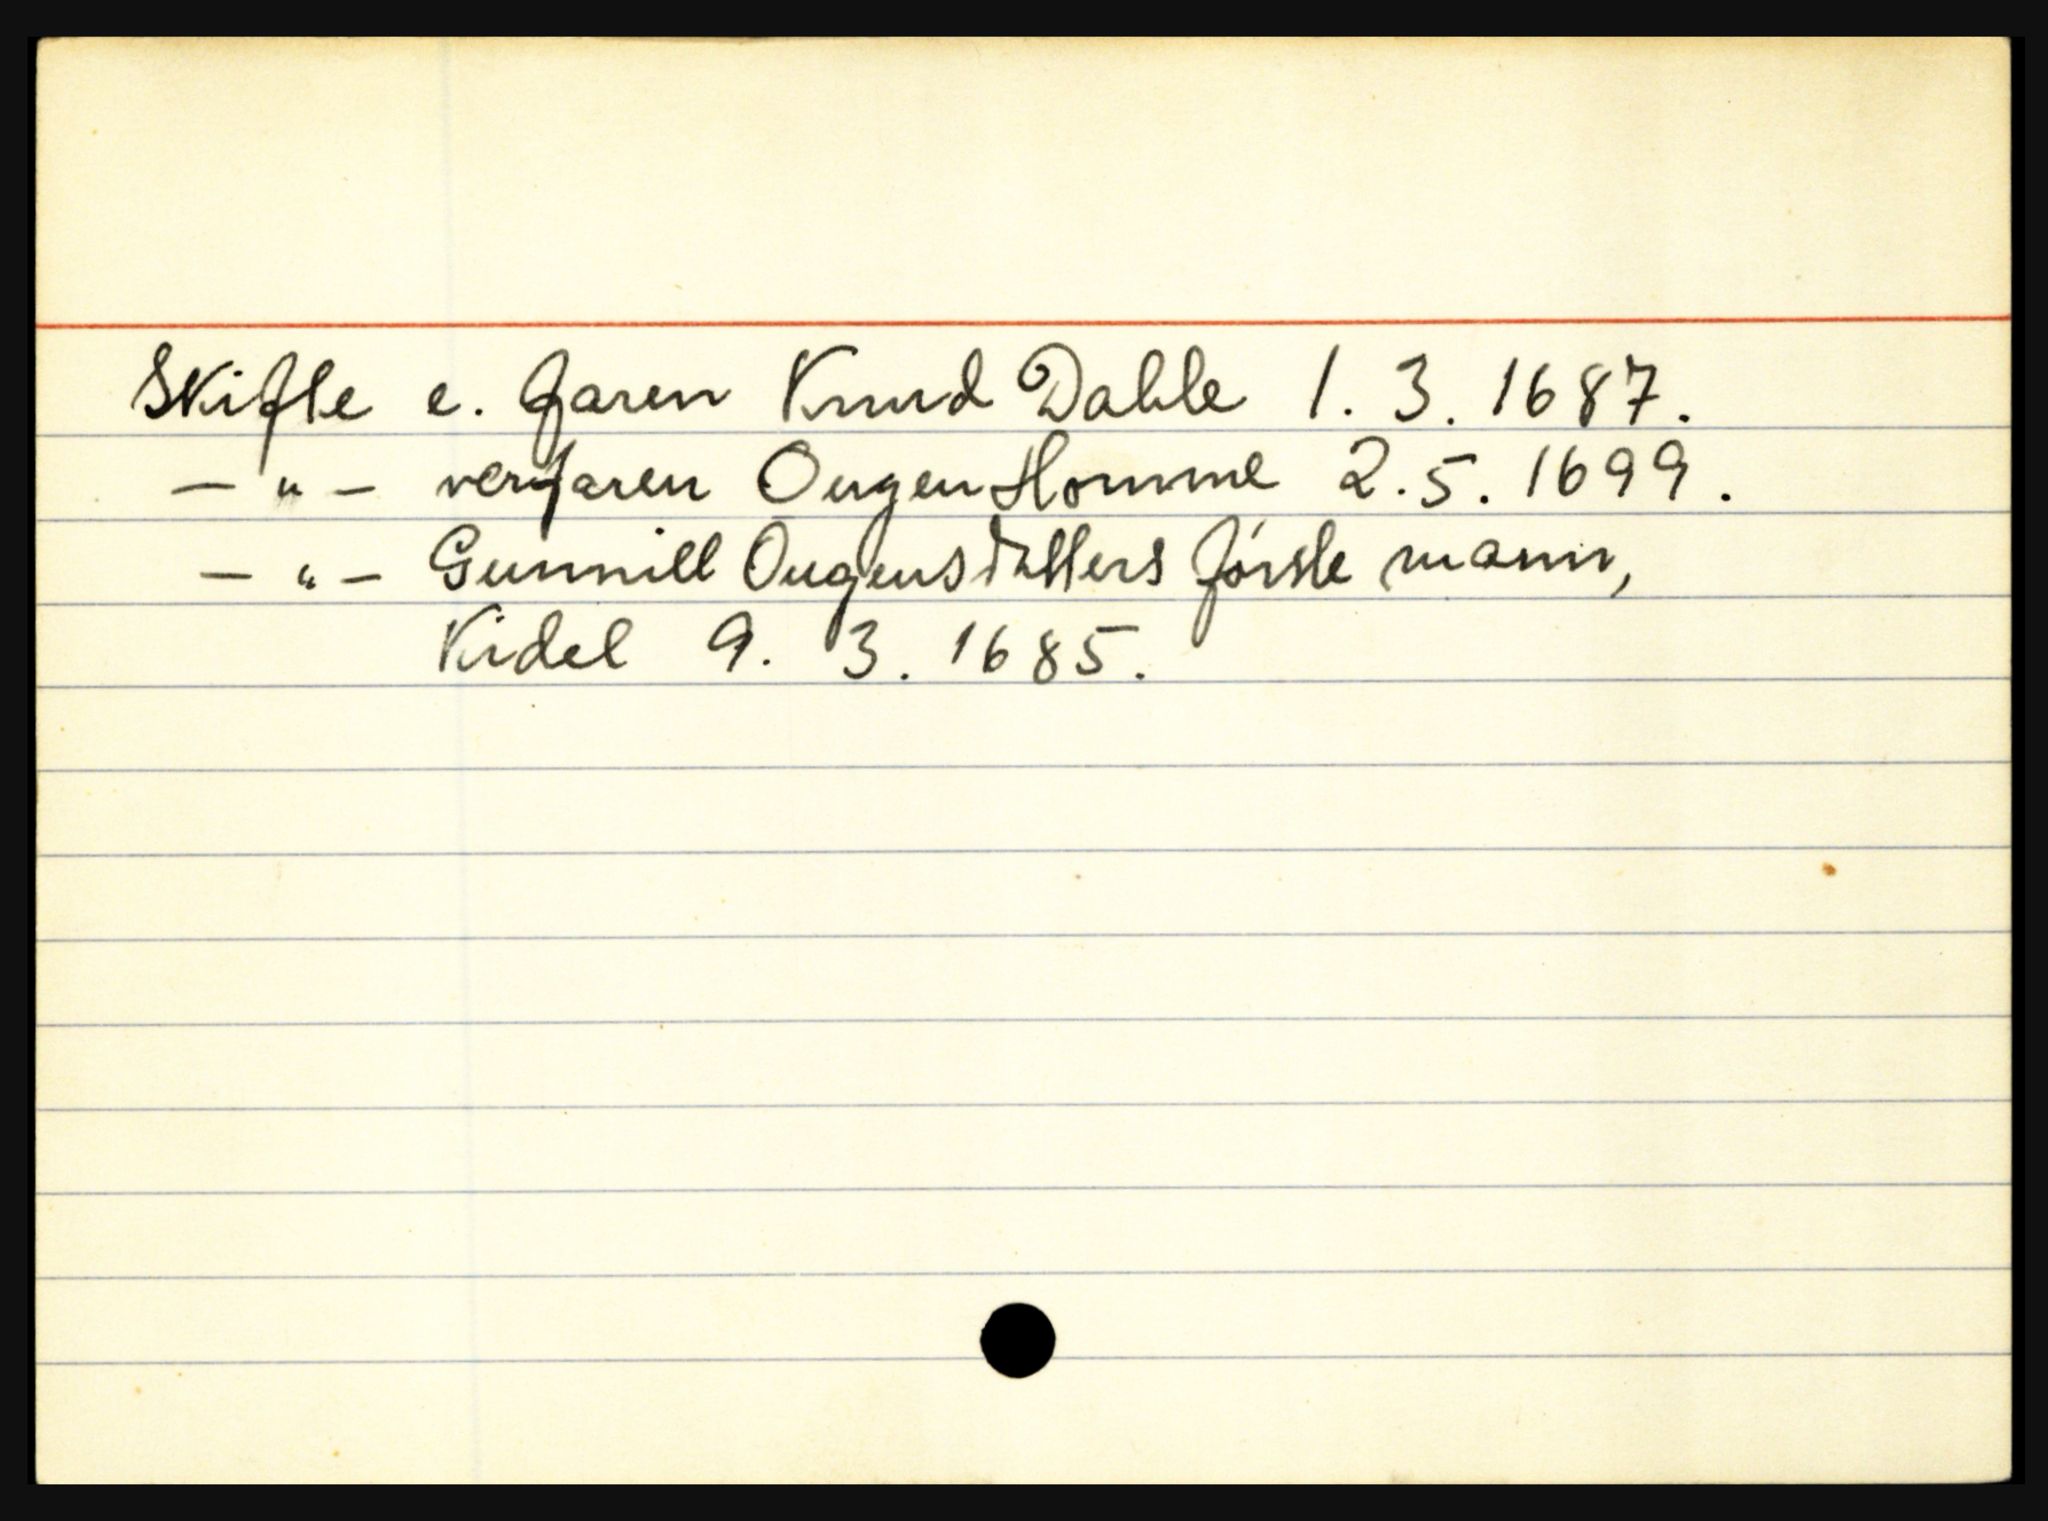 Skifte e. faren Knud Dahle 1. 3. 1687.
— " — verfaren Ougen Homme 2. 5. 1699.
— " — Gunnill Ougensdatters förste mann,
Kidel 9. 3. 1685.